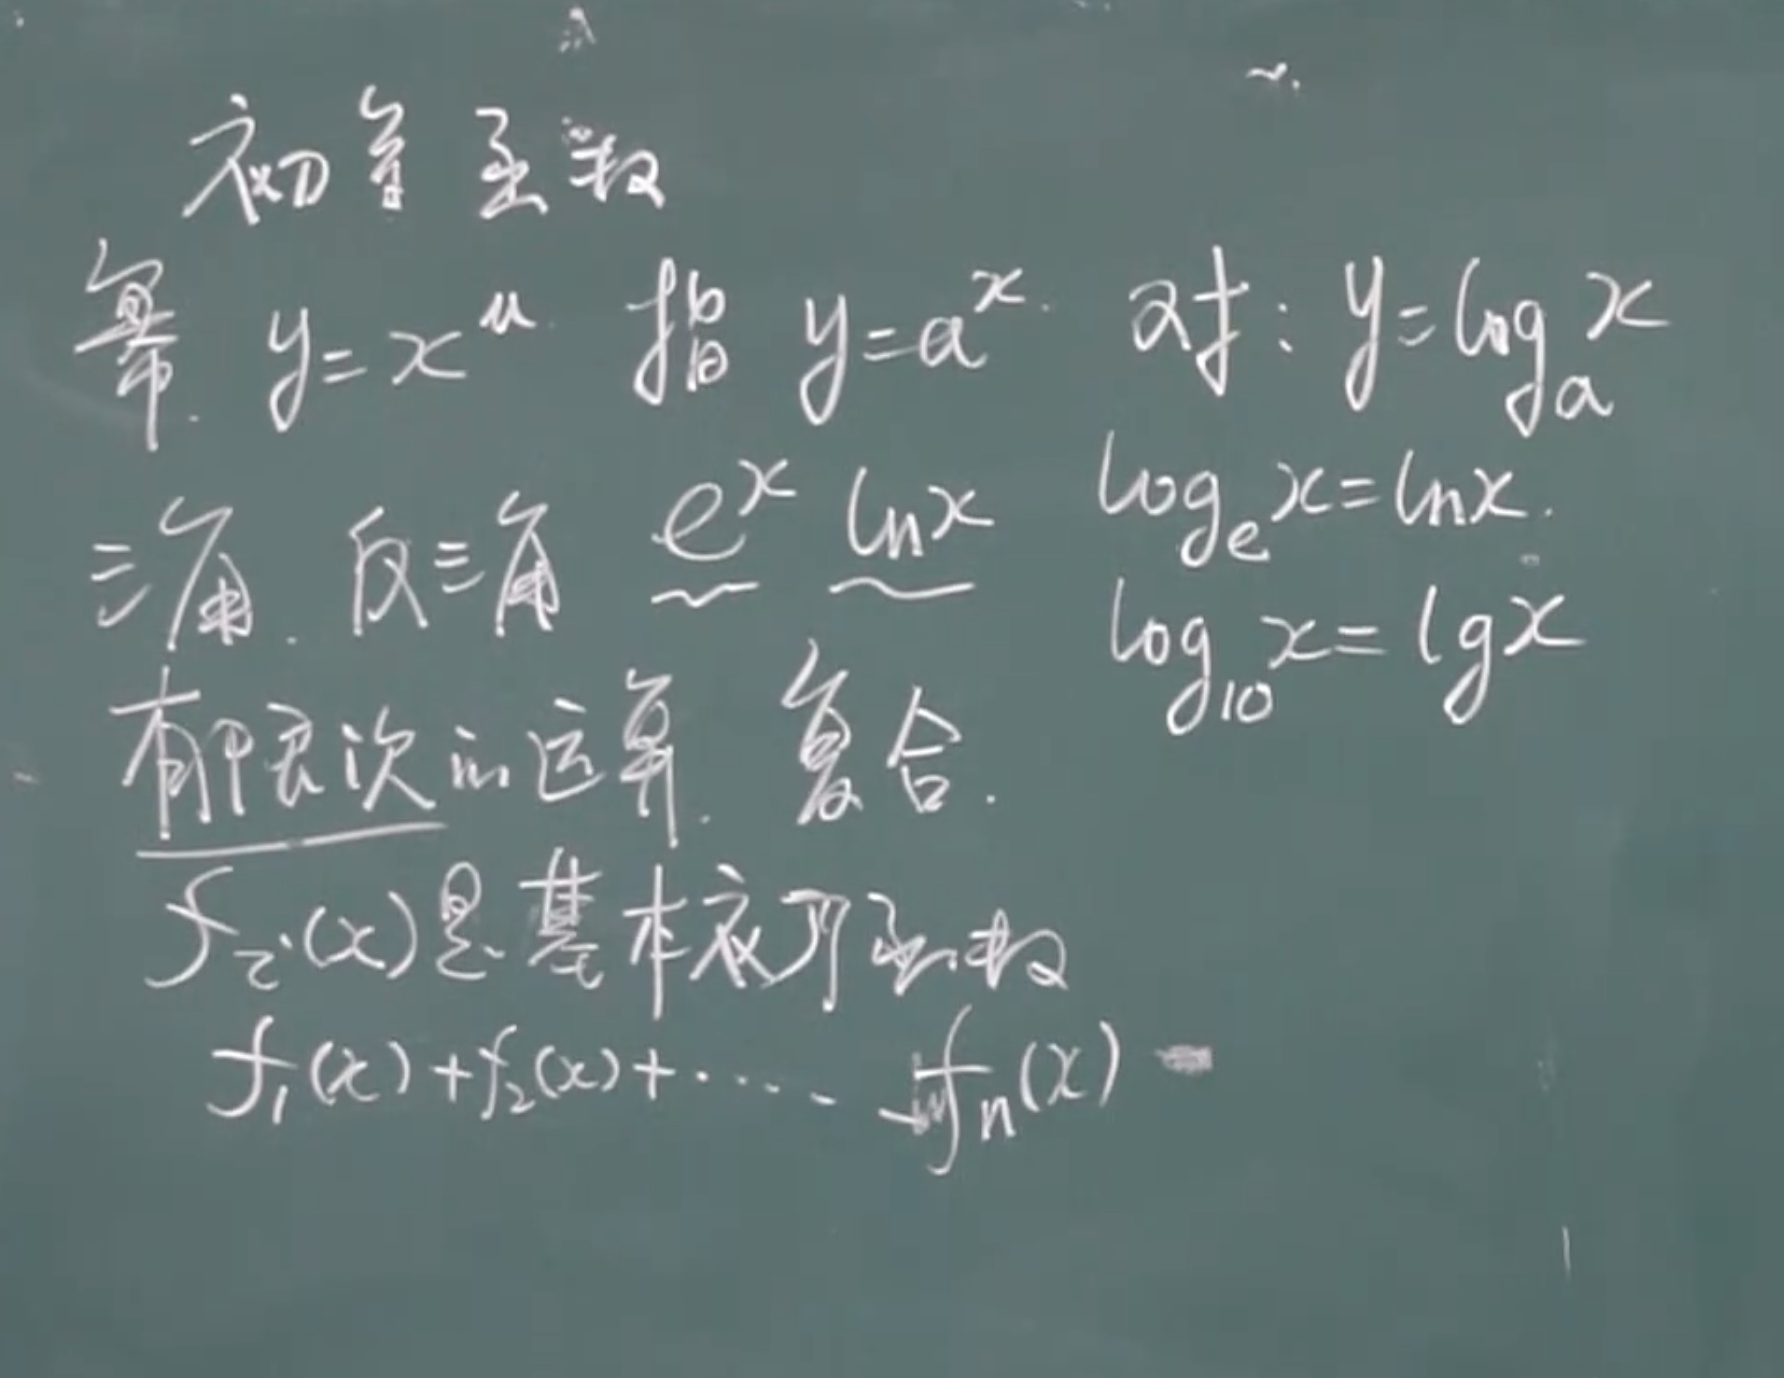 初等函数
幂. y=x^u. 指 y=a^x. 对: y=log_a x
三角. 反三角 e^x ln x log_e x=ln x.
log_10 x=lg x
有限次的运算. 复合.
f_i(x)是基本初等函数
f_1(x)+f_2(x)+····· f_n(x)